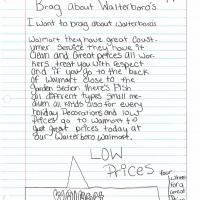 Brag About Walterboro's
I want to brag about Walterboro's
Walmart they have great Coust-
umer Service they have it
Clean and Great prices all wor-
kers treat you with respect
and if you go to the back
of Walmart close to the
Garden Section there's Fish
all different types small me-
dium all kinds also for every
holiday Decorations and low
Prices go to Walmart to
get great prices today at
our Walterboro Walmart.
LOW
Prices
Walmart
your
for a
Great